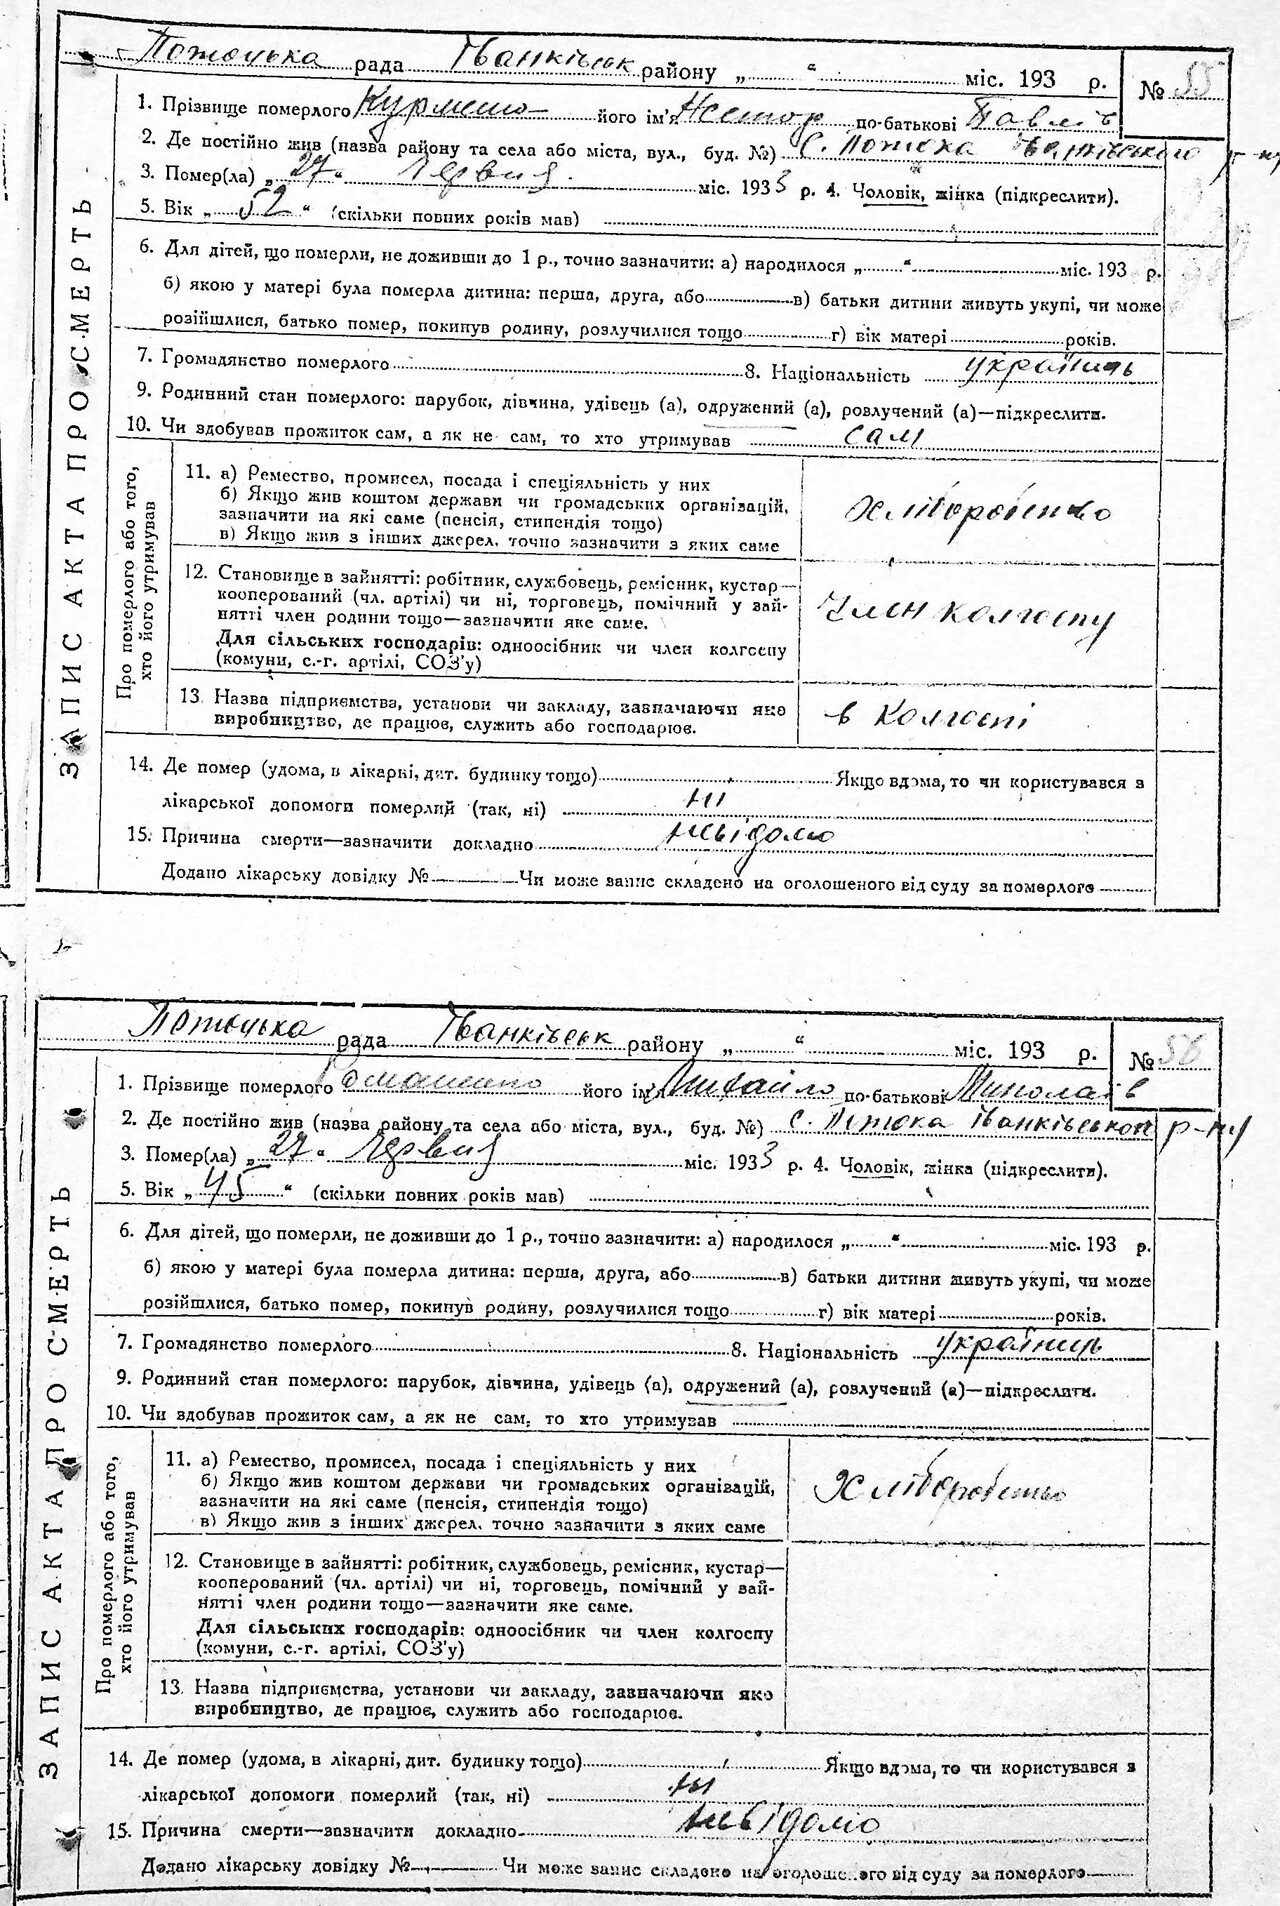 Потоцька рада Іванківськ району „ “ міс. 193 р. № 55
1. Прізвище померлого його ім'я Нестор по-батькові Павлів
2. Де постійно жив (назва району та села або міста, вул., буд. №) С. Потока Іванківського р-ну
3. Помер(ла) „ 27 “ Червня міс. 1933 р. 4. Чоловік, жінка (підкреслити).
5. Вік „ 52 “ (скільки повних років мав)
6. Для дітей, що померли, не доживши до 1 р., точно зазначити: а) народилося „ “ міс. 193 р.
б) якою у матері була померла дитина: перша, друга, або в) батьки дитини живуть укупі, чи може
розійшлися, батько помер, покинув родину, розлучилися тощо г) вік матері років.
7. Громадянство померлого 8. Національність українець
9. Родинний стан померлого: парубок, дівчина, удівець (а), одружений (а), розлучений (а)—підкреслити.
10. Чи здобував прожиток сам, а як не сам, то хто утримував сам
ЗАПИС АКТА ПРО СМЕРТЬ
Про померлого або того,
хто його утримував
11. а) Ремество, промисел, посада і спеціяльність у них
б) Якщо жив коштом держави чи громадських організацій,
зазначити на які саме (пенсія, стипендія тощо)
в) Якщо жив з інших джерел, точно зазначити з яких саме
Хліборобство
12. Становище в зайнятті: робітник, службовець, ремісник, кустар—
кооперований (чл. артілі) чи ні, торговець, помічний у зай-
нятті член родини тощо—зазначити яке саме.
Для сільських господарів: одноосібник чи член колгоспу
(комуни, с.-г. артілі, СОЗ'у)
Член колгоспу
13. Назва підприємства, установи чи закладу, зазначаючи яке
виробництво, де працює, служить або господарює.
в колгоспі
14. Де помер (удома, в лікарні, дит. будинку тощо) Якщо вдома, то чи користувався з
лікарської допомоги померлий (так, ні) ні
15. Причина смерти—зазначити докладно невідомо
Додано лікарську довідку № Чи може запис складено на оголошеного від суду за померлого
Потоцька рада Іванківськ району „ “ міс. 193 р. № 56
1. Прізвище померлого Романенко його ім'я Михайло по-батькові Миколаїв
2. Де постійно жив (назва району та села або міста, вул., буд. №) С. Потока Іванківського р-ну
3. Помер(ла) „ 27 “ Червня міс. 1933 р. 4. Чоловік, жінка (підкреслити).
5. Вік „ 45 “ (скільки повних років мав)
6. Для дітей, що померли, не доживши до 1 р., точно зазначити: а) народилося „ “ міс. 193 р.
б) якою у матері була померла дитина: перша, друга, або в) батьки дитини живуть укупі, чи може
розійшлися, батько помер, покинув родину, розлучилися тощо г) вік матері років.
7. Громадянство померлого 8. Національність українець
9. Родинний стан померлого: парубок, дівчина, удівець (а), одружений (а), розлучений (а)—підкреслити.
10. Чи здобував прожиток сам, а як не сам, то хто утримував
ЗАПИС АКТА ПРО СМЕРТЬ
Про померлого або того,
хто його утримував
11. а) Ремество, промисел, посада і спеціяльність у них
б) Якщо жив коштом держави чи громадських організацій,
зазначити на які саме (пенсія, стипендія тощо)
в) Якщо жив з інших джерел, точно зазначити з яких саме
Хліборобство
12. Становище в зайнятті: робітник, службовець, ремісник, кустар—
кооперований (чл. артілі) чи ні, торговець, помічний у зай-
нятті член родини тощо—зазначити яке саме.
Для сільських господарів: одноосібник чи член колгоспу
(комуни, с.-г. артілі, СОЗ'у)
13. Назва підприємства, установи чи закладу, зазначаючи яке
виробництво, де працює, служить або господарює.
14. Де помер (удома, в лікарні, дит. будинку тощо) Якщо вдома, то чи користувався з
лікарської допомоги померлий (так, ні) ні
15. Причина смерти—зазначити докладно невідомо
Додано лікарську довідку № Чи може запис складено на оголошеного від суду за померлого